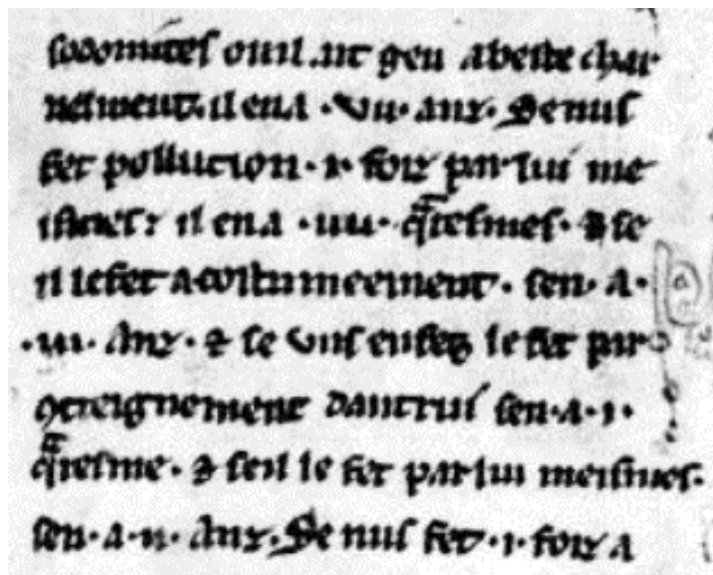 sodomites ou il ait geu a beste char
nelment. il en a .vii. anz. Se nus
fet pollution .i. foiz par lui me
ismes: il en a .iiii. qͣresmes. ⁊ se
il le fet acostumeement. sen. a.
.iii. anz. ⁊ se vns enfez le fet par
ꝯtreignement dautrui sen .a. i.
qͣresme. ⁊ seil le fet par lui meismes.
sen. a. ii. anz. Se nus fet .i. foiz a